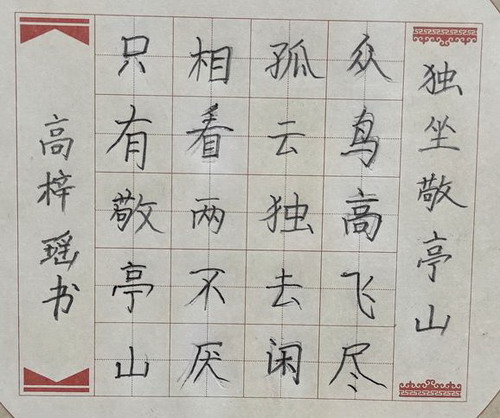 独坐敬亭山
众鸟高飞尽
孤云独去闲
相看两不厌
只有敬亭山
高梓瑶书